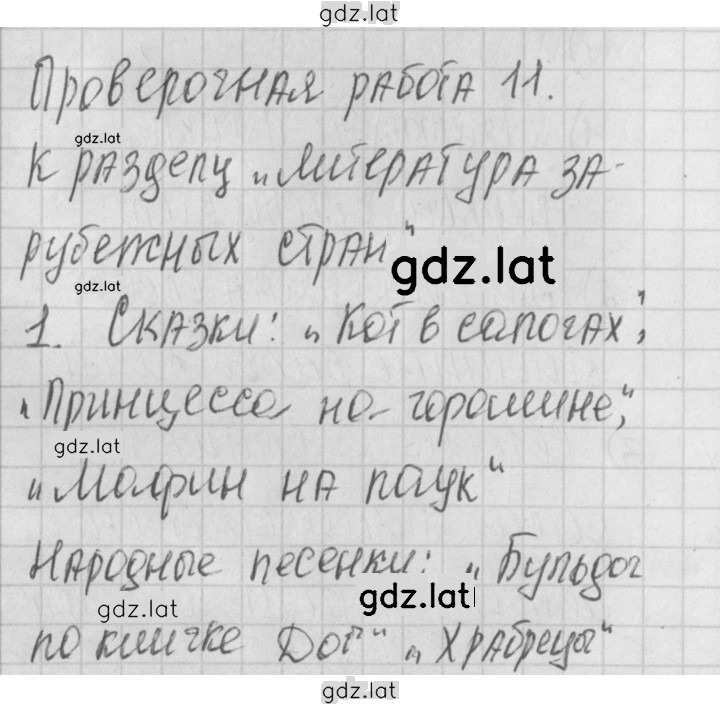 gdz.lat
Проверочная работа 11.
gdz.lat
к разделу „Литература за-
рубежных стран"
gdz.lat
gdz.lat
1. Сказки: „Кот в сапогах",
„Принцесса на горошине",
gdz.lat
„Мафин на паук"
Народные песенки: „Бульдог
gdz.lat
gdz.lat
по кличке Дог" „Храбрецы"
gdz.lat